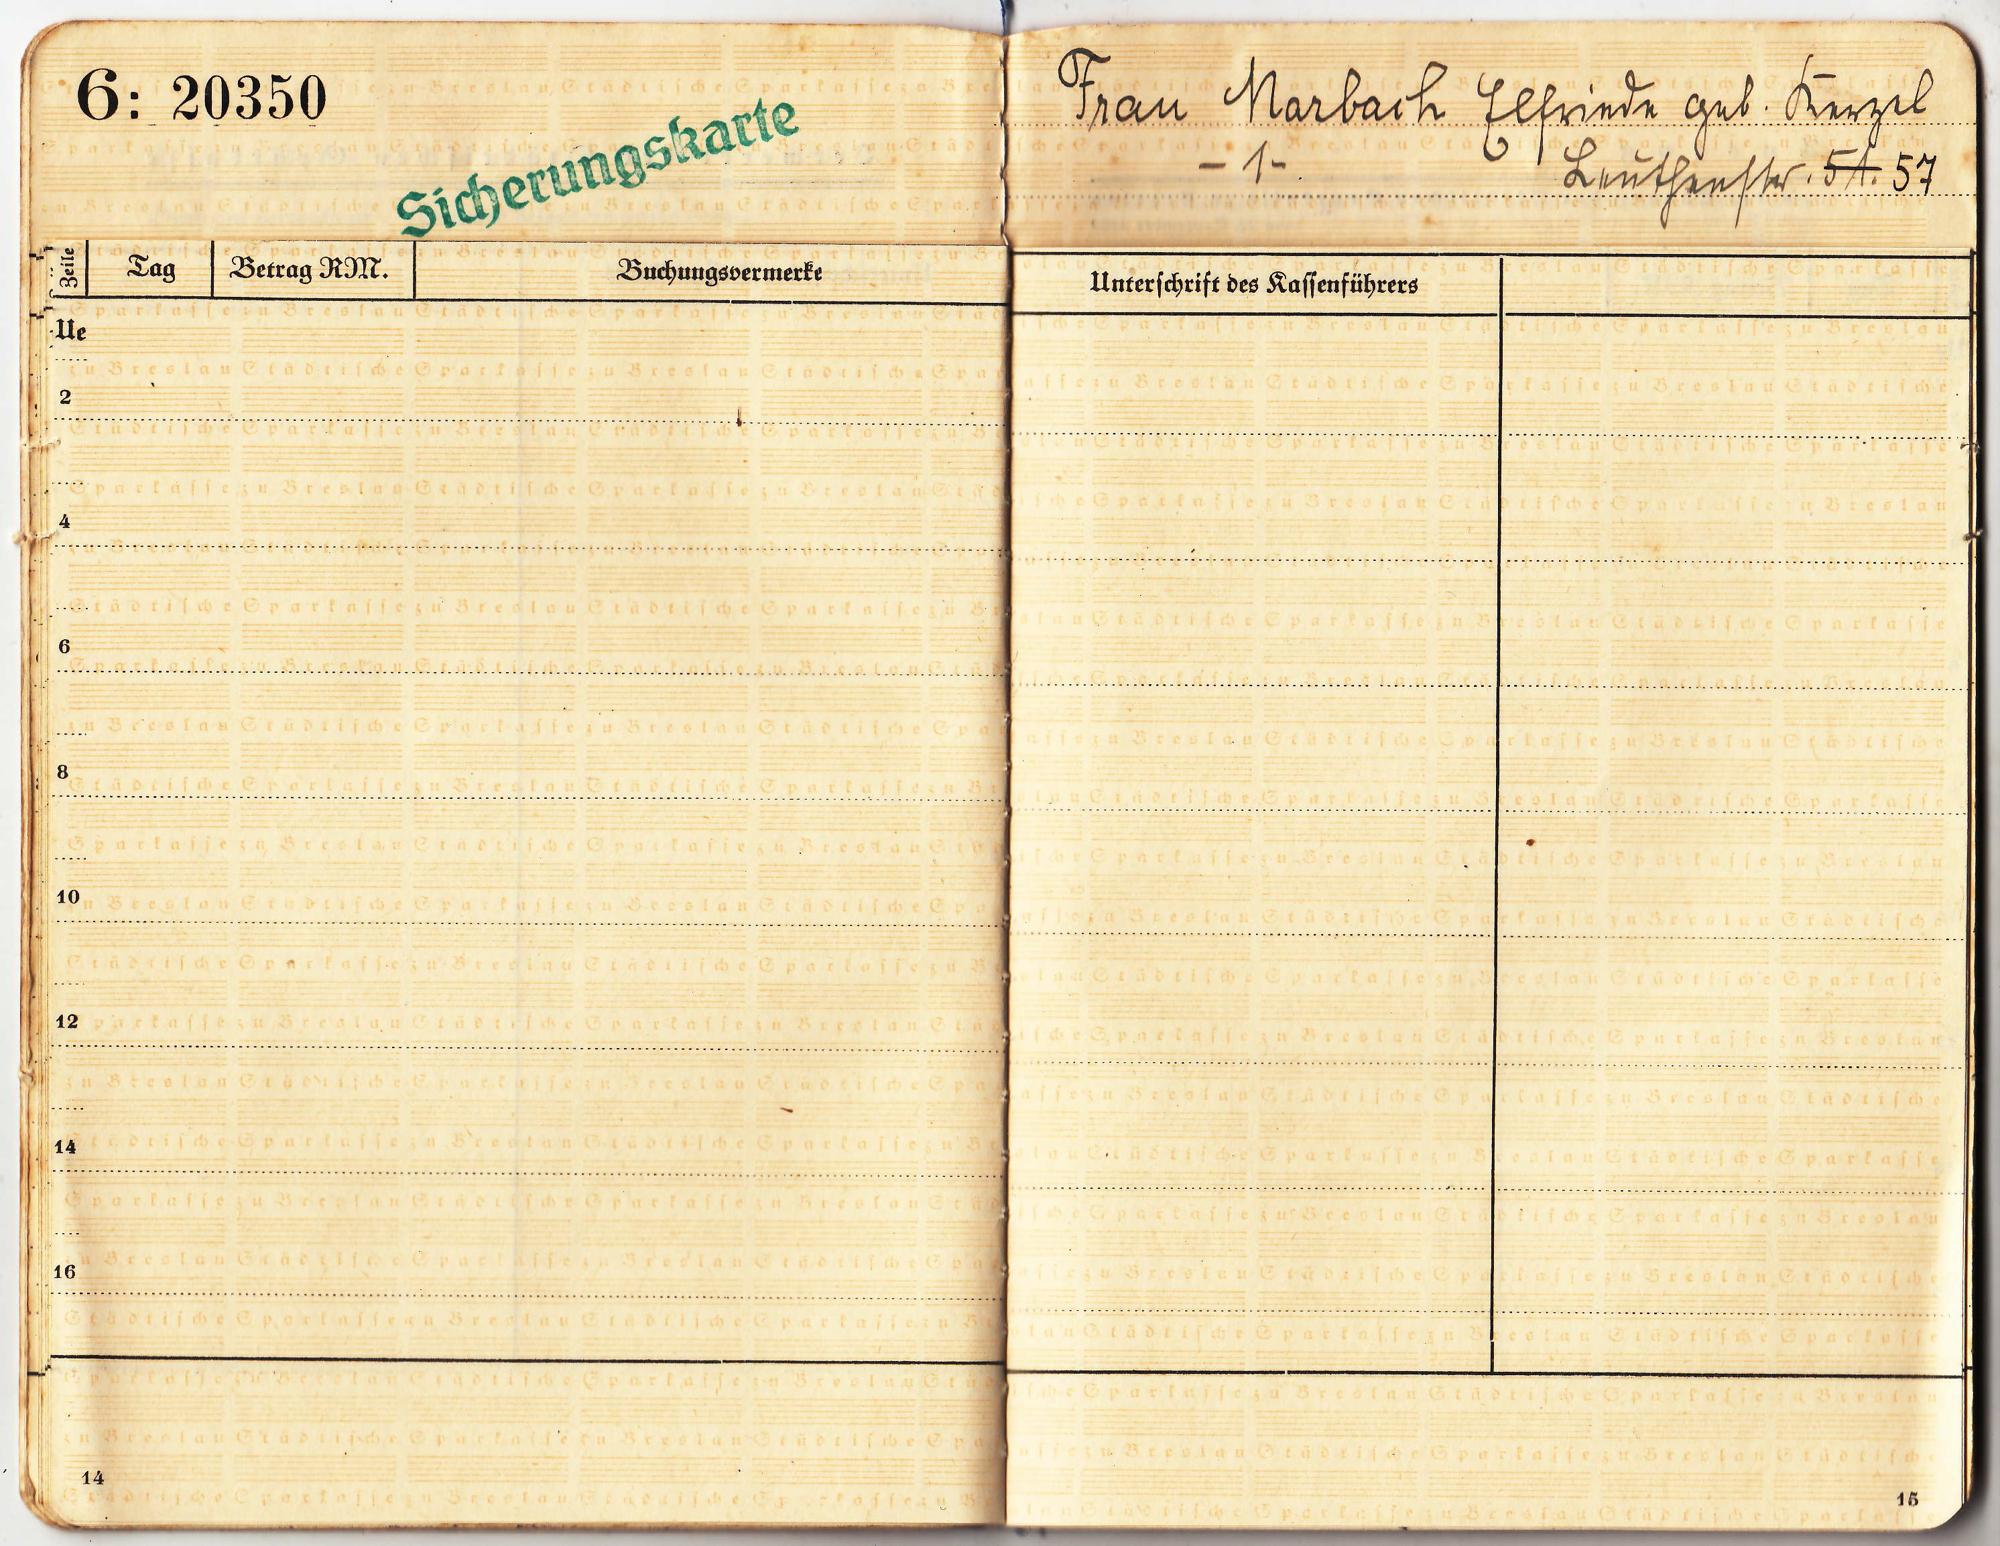 6: 20350
Sicherungskarte
Frau Marbach Elfriede geb. Kerzel
- 1 -
Leuthenstr. 51. 57
Zeile
Tag
Betrag RM.
Buchungsvermerke
Unterschrift des Kassenführers
Ue
2
4
6
8
10
12
14
16
14
15
Städtische Sparkasse zu Breslau